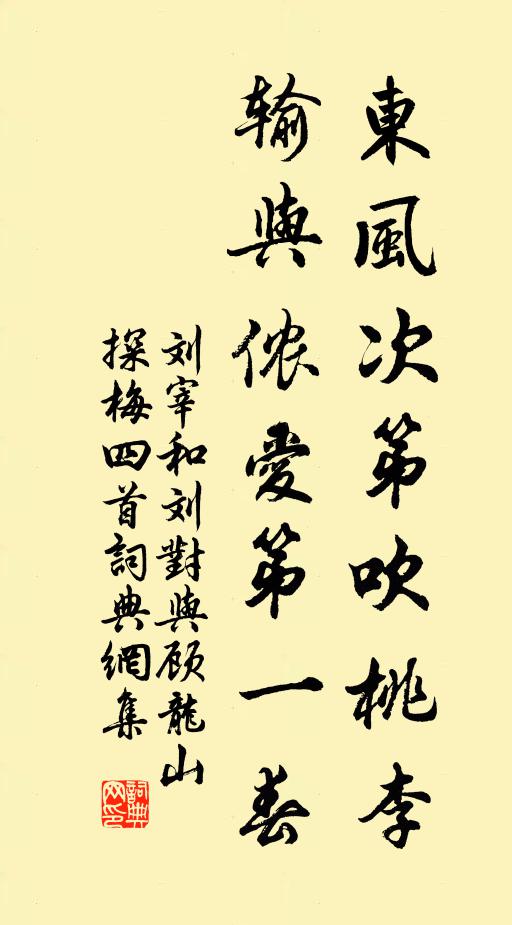 東風次第吹桃李
输與侬愛第一春
刘宰和刘對與顾龍山
探梅四首詞典網集
詞典
网印